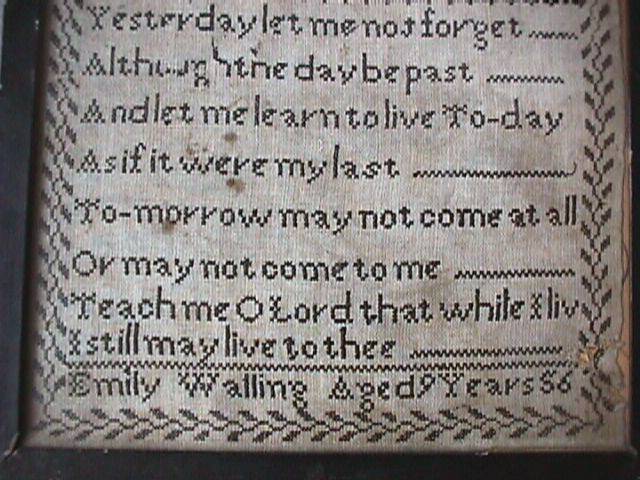 Yesterday let me not forget
Although the day be past
And let me learn to live To-day
As if it were my last
To-morrow may not come at all
Or may not come to me
Teach me O Lord that while I liv
I still may live to thee
Emily Walling Aged 9 Years 66